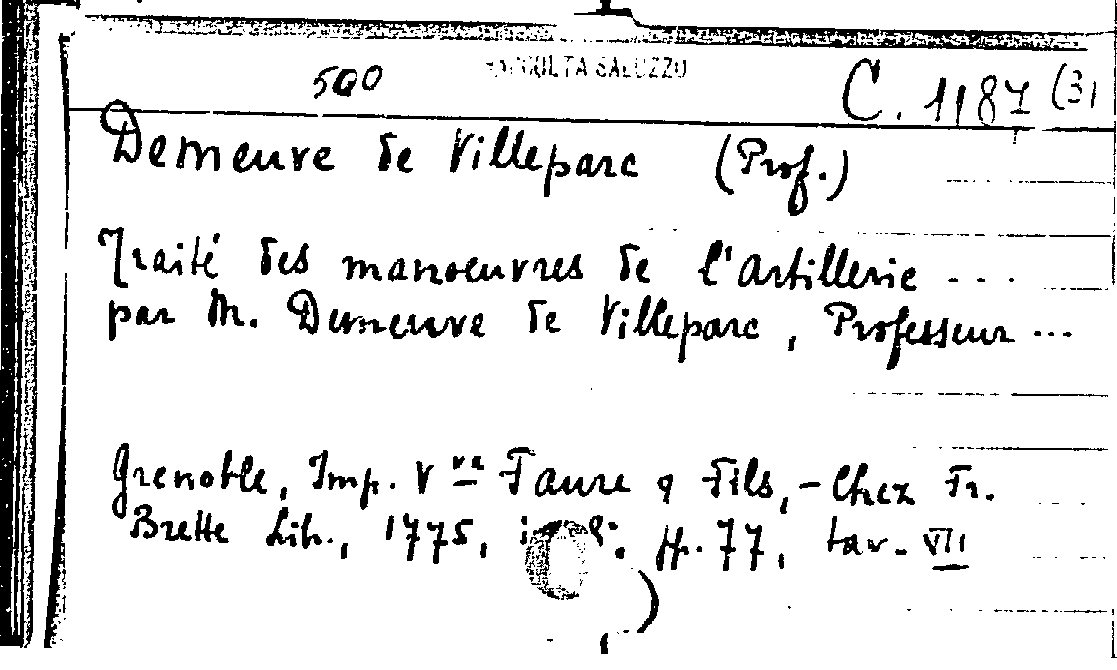 500 RACCOLTA SALUZZO C. 1187 (3)
Demeuve de Villeparc (Prof.)
Traité des manoeuvres de l'artillerie ....
par M. Demeuve de Villeparc, Professeur ...
Grenoble, Imp. Vve Faure & Fils, - Chez Fr.
Brette Lib., 1775, in 8°. pp. 77, tav. VII